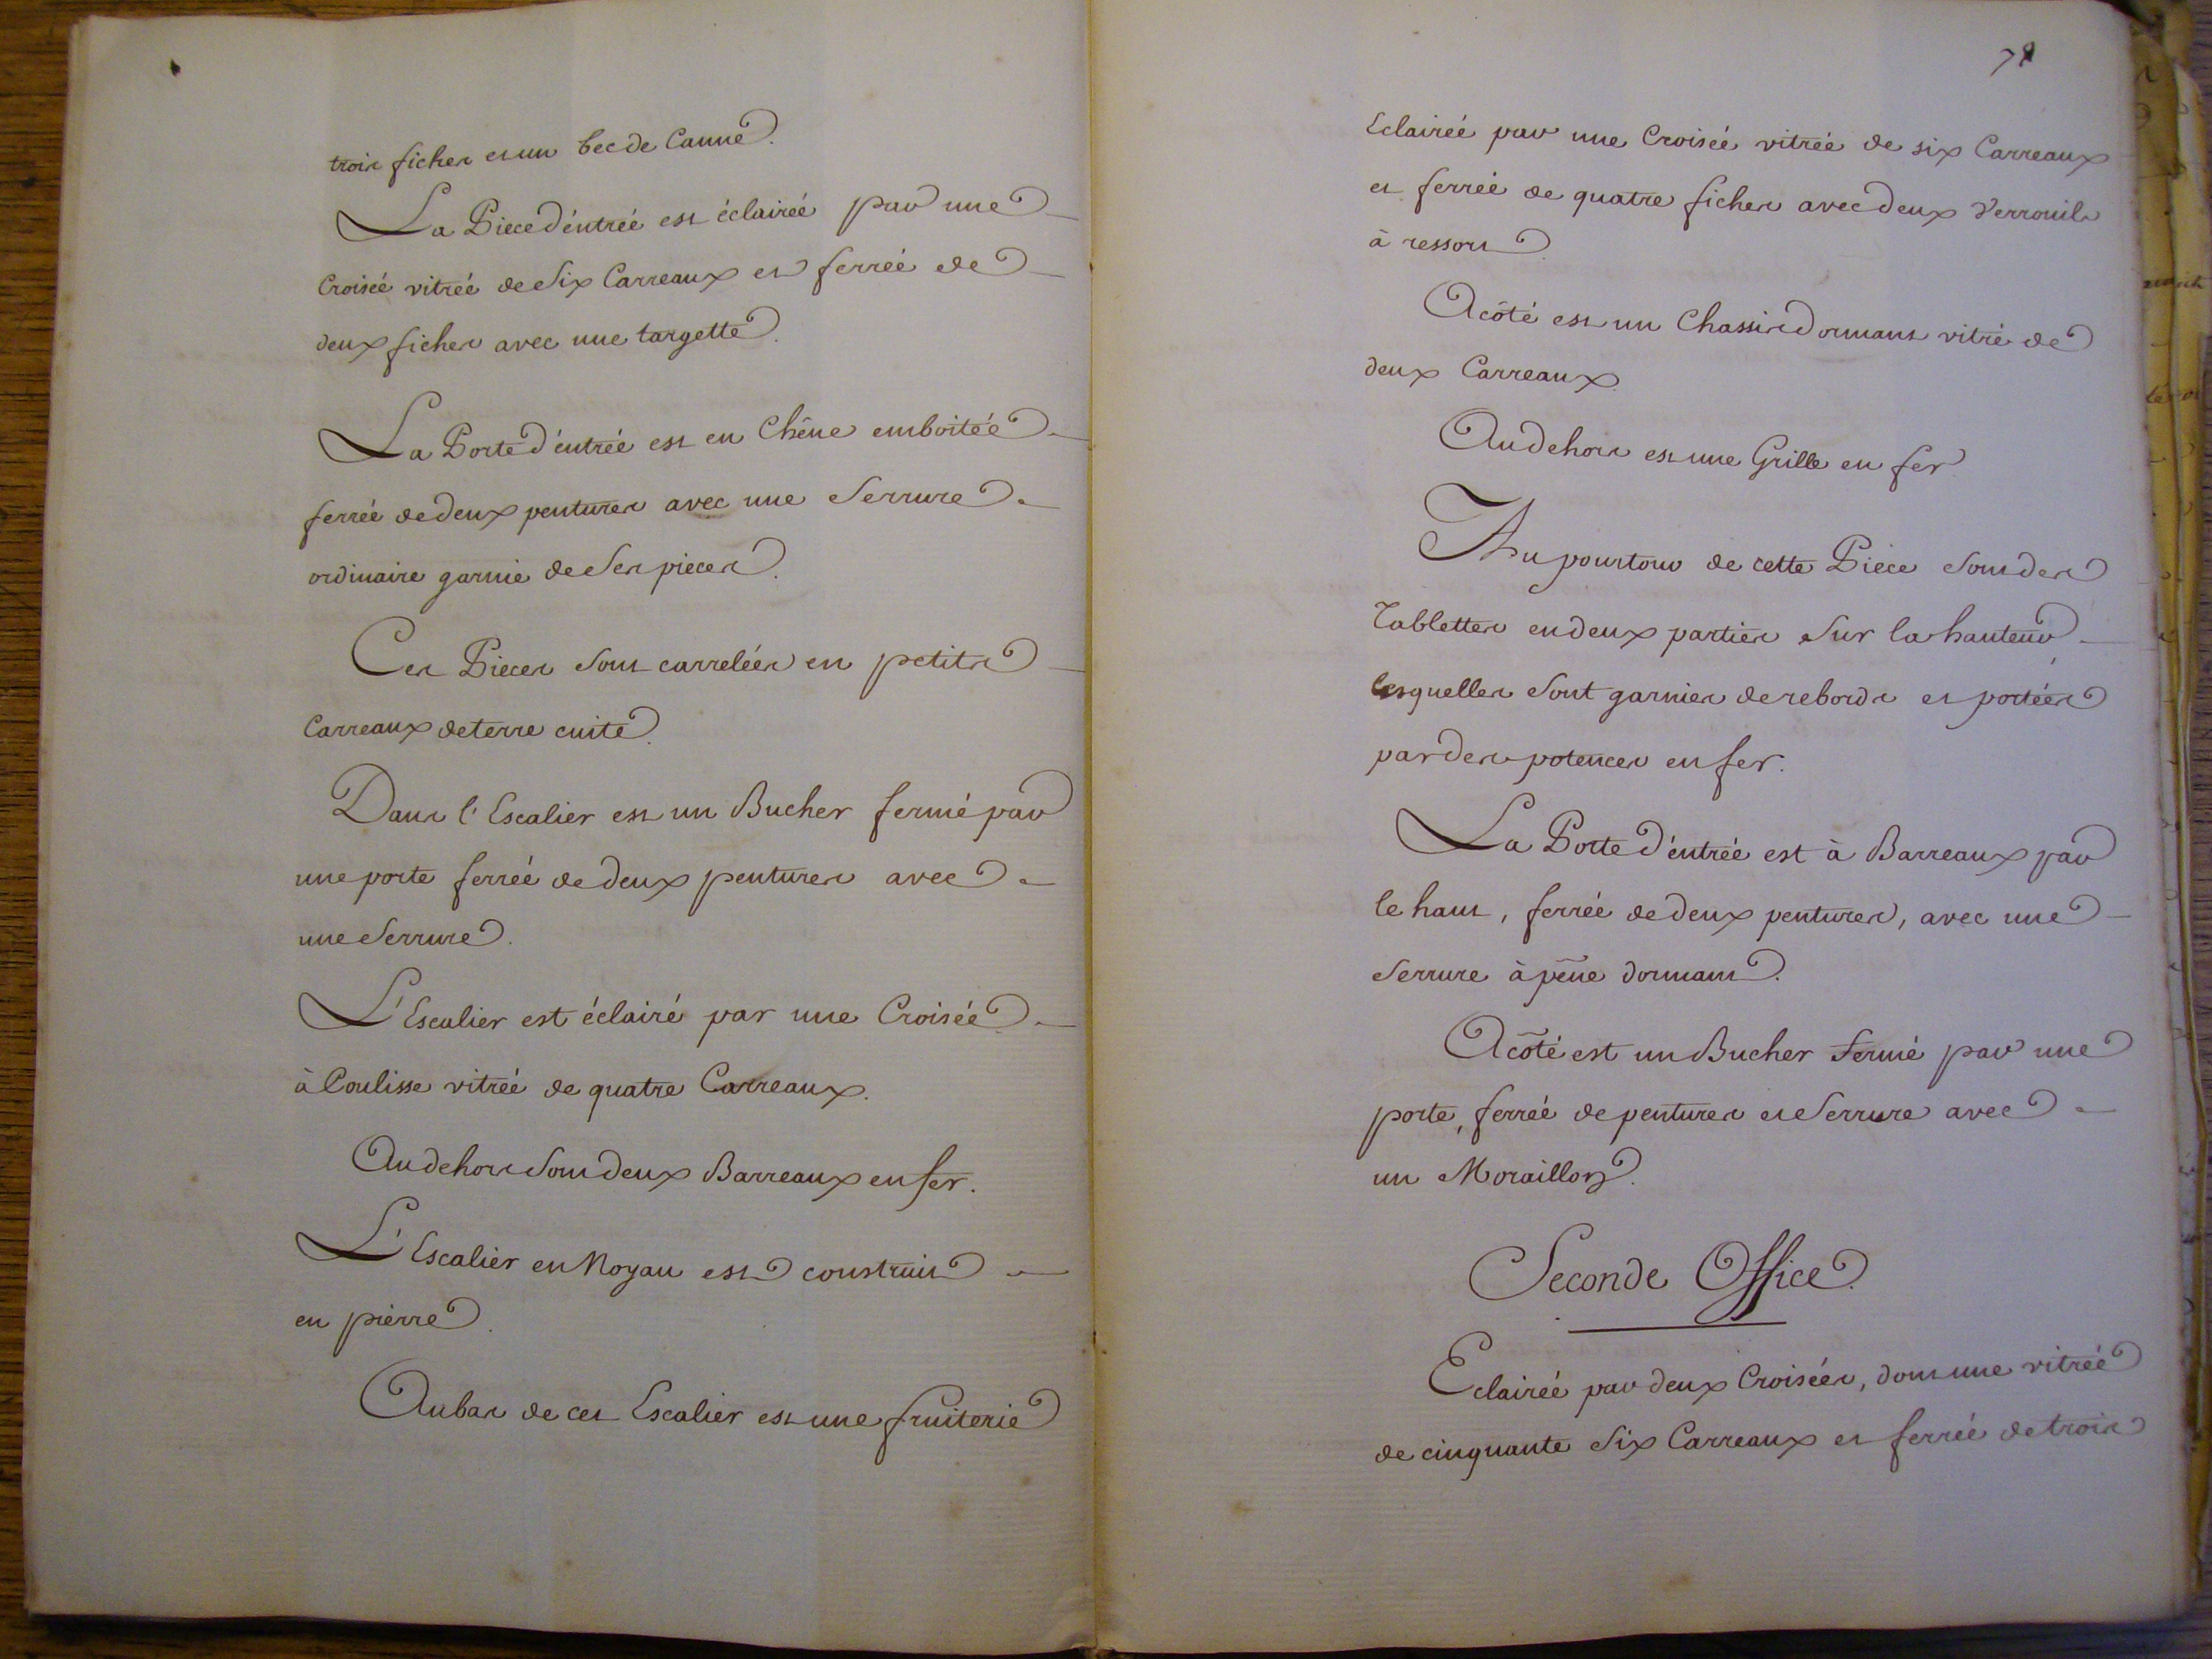 trois fiches et un bec de Canne.
La Piece d'éntréé est éclairéé par une
Croiséé vitréé de Six Carreaux et ferréé de
deux fiches avec une targette.
La Porte d'éntréé est en Chêne emboitéé
ferréé de deux pentures avec une Serrure
ordinaire garnie de Ses pieces.
Ces Pieces Sont carreléés en petits
Carreaux de terre cuite.
Dans l'Escalier est un Bucher fermé par
une porte ferréé de deux pentures avec
une Serrure.
L'Escalier est éclairé par une Croiséé
à Coulisse vitréé de quatre Carreaux.
Au dehors Sont deux Barreaux en fer.
L'Escalier en Noyau est construit
en pierre.
Au bas de cet Escalier est une fruiterie
78
Eclairéé par une Croiséé vitréé de six Carreaux
et ferréé de quatre fiches avec deux Verrouils
à ressort.
A côté est un Chassis dormant vitré de
deux Carreaux.
Au dehors est une Grille en fer.
Au pourtour de cette Piece Sont des
Tablettes en deux parties Sur la hauteur
lesquelles Sont garnies de rebords et portéés
par des potences en fer.
La Porte d'éntréé est à Barreaux par
le haut, ferréé de deux pentures, avec une
Serrure à pêne dormant.
A côté est un Bucher Fermé par une
porte, ferréé de pentures et Serrure avec
un Moraillon.
Seconde Office.
Eclairéé par deux Croiséés, dont une vitréé
de cinquante Six Carreaux et ferréé de trois